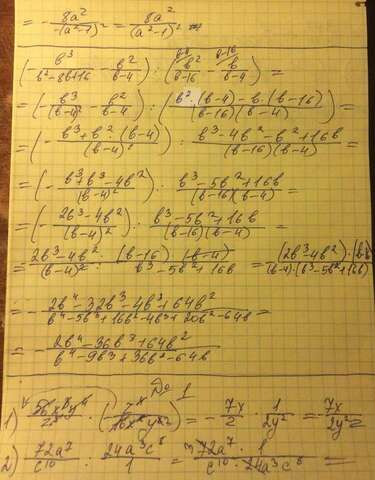 = - 8a² / -(a²-1)² = 8a² / (a²-1)²
(b³ / b²-8b+16 - b² / b-4) : (b² / b-16 - b / b-4) =
= (- b³ / (b-4)² - b² / b-4) : (b²·(b-4) - b·(b-16) / (b-16)(b-4)) =
= (- b³+b²·(b-4) / (b-4)²) : b³-4b²-b²+16b / (b-16)(b-4) =
= (- b³+b³-4b² / (b-4)²) : b³-5b²+16b / (b-16)(b-4) =
= (- 2b³-4b² / (b-4)²) : b³-5b²+16b / (b-16)(b-4)
= - 2b³-4b² / (b-4)² · (b-16)(b-4) / b³-5b²+16b = (2b³-4b²)· / (b-4)·(b³-5b²+16b)
= - 2b⁴-32b³-4b³+64b² / b⁴-5b³+16b²-4b³+20b²-64b =
= - 2b⁴-36b³+64b² / b⁴-9b³+36b²-64b
№ 1
1) = - 7x / 2 · 1 / 2y² = - 7x / 2y²
2) 72a⁷ / c¹⁰ : 24a³c⁸ / 1 = 72a⁷·1 / c¹⁰·24a³c⁸ =